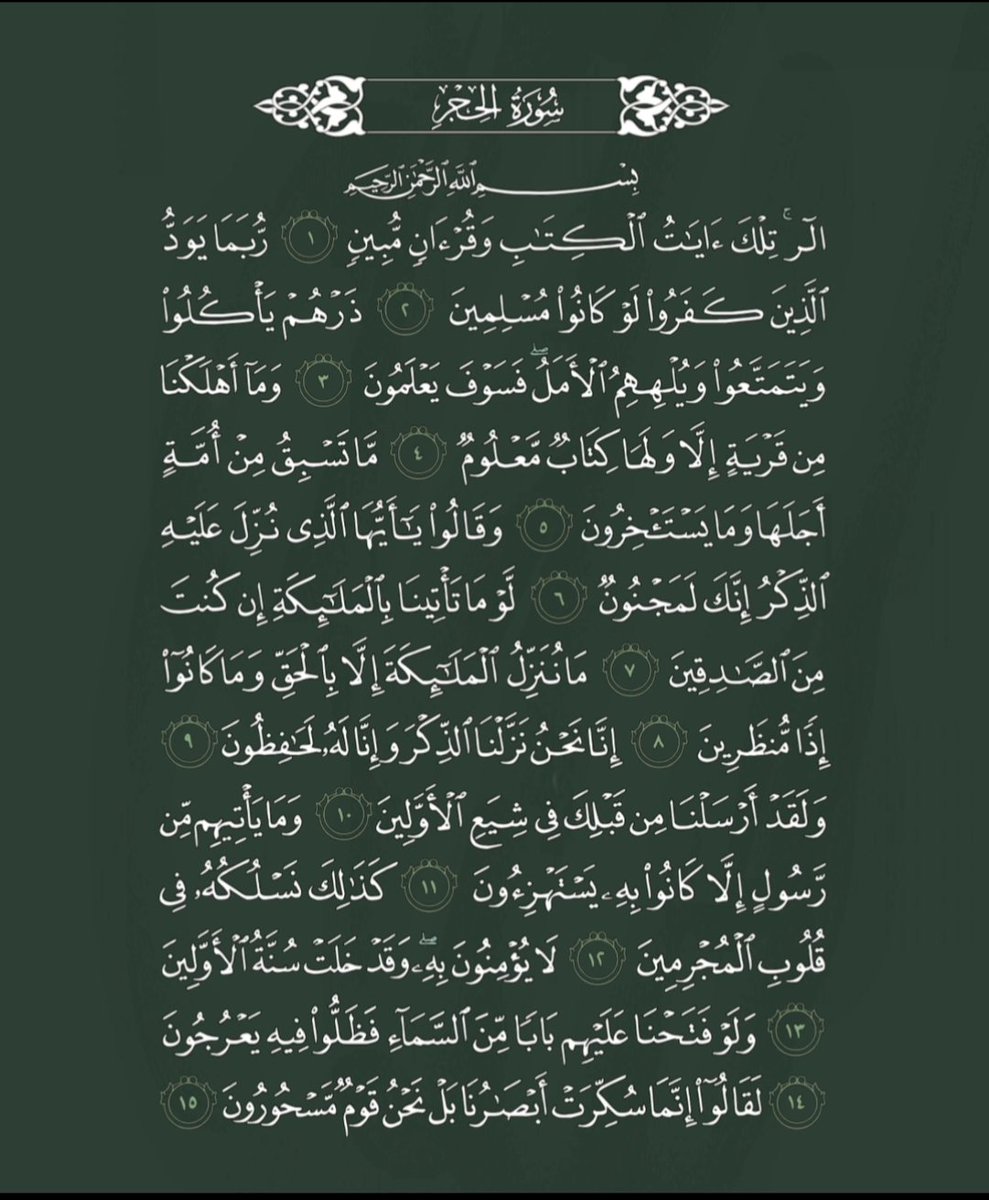 سُورَةُ الحِجْرِ
بِسْمِ ٱللَّهِ ٱلرَّحْمَٰنِ ٱلرَّحِيمِ
الٓرۚ تِلْكَ ءَايَٰتُ ٱلْكِتَٰبِ وَقُرْءَانٖ مُّبِينٖ ١ رُّبَمَا يَوَدُّ
ٱلَّذِينَ كَفَرُواْ لَوْ كَانُواْ مُسْلِمِينَ ٢ ذَرْهُمْ يَأْكُلُواْ
وَيَتَمَتَّعُواْ وَيُلْهِهِمُ ٱلْأَمَلُۖ فَسَوْفَ يَعْلَمُونَ ٣ وَمَآ أَهْلَكْنَا
مِن قَرْيَةٍ إِلَّا وَلَهَا كِتَابٞ مَّعْلُومٞ ٤ مَّا تَسْبِقُ مِنْ أُمَّةٍ
أَجَلَهَا وَمَا يَسْتَـْٔخِرُونَ ٥ وَقَالُواْ يَٰٓأَيُّهَا ٱلَّذِى نُزِّلَ عَلَيْهِ
ٱلذِّكْرُ إِنَّكَ لَمَجْنُونٞ ٦ لَّوْ مَا تَأْتِينَا بِٱلْمَلَٰٓئِكَةِ إِن كُنتَ
مِنَ ٱلصَّٰدِقِينَ ٧ مَا نُنَزِّلُ ٱلْمَلَٰٓئِكَةَ إِلَّا بِٱلْحَقِّ وَمَا كَانُوٓاْ
إِذٗا مُّنظَرِينَ ٨ إِنَّا نَحْنُ نَزَّلْنَا ٱلذِّكْرَ وَإِنَّا لَهُۥ لَحَٰفِظُونَ ٩
وَلَقَدْ أَرْسَلْنَا مِن قَبْلِكَ فِى شِيَعِ ٱلْأَوَّلِينَ ١٠ وَمَا يَأْتِيهِم مِّن
رَّسُولٍ إِلَّا كَانُواْ بِهِۦ يَسْتَهْزِءُونَ ١١ كَذَٰلِكَ نَسْلُكُهُۥ فِى
قُلُوبِ ٱلْمُجْرِمِينَ ١٢ لَا يُؤْمِنُونَ بِهِۦۖ وَقَدْ خَلَتْ سُنَّةُ ٱلْأَوَّلِينَ
١٣ وَلَوْ فَتَحْنَا عَلَيْهِم بَابٗا مِّنَ ٱلسَّمَآءِ فَظَلُّواْ فِيهِ يَعْرُجُونَ
١٤ لَقَالُوٓاْ إِنَّمَا سُكِّرَتْ أَبْصَٰرُنَا بَلْ نَحْنُ قَوْمٞ مَّسْحُورُونَ ١٥